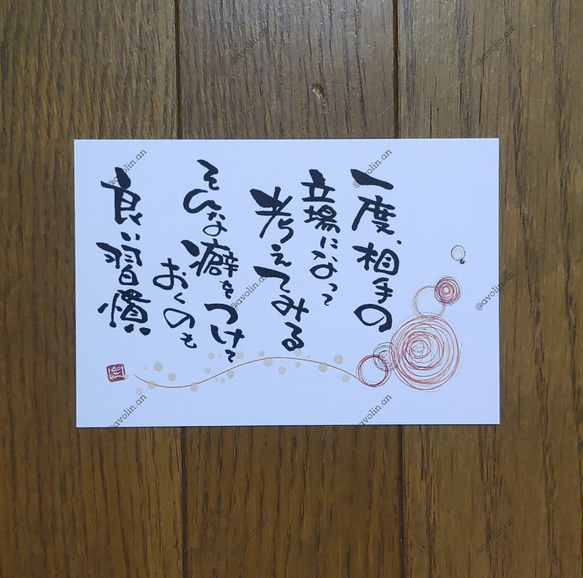 一度、相手の
立場になって
考えてみる
そんな癖をつけて
おくのも
良い習慣
@avolin.an